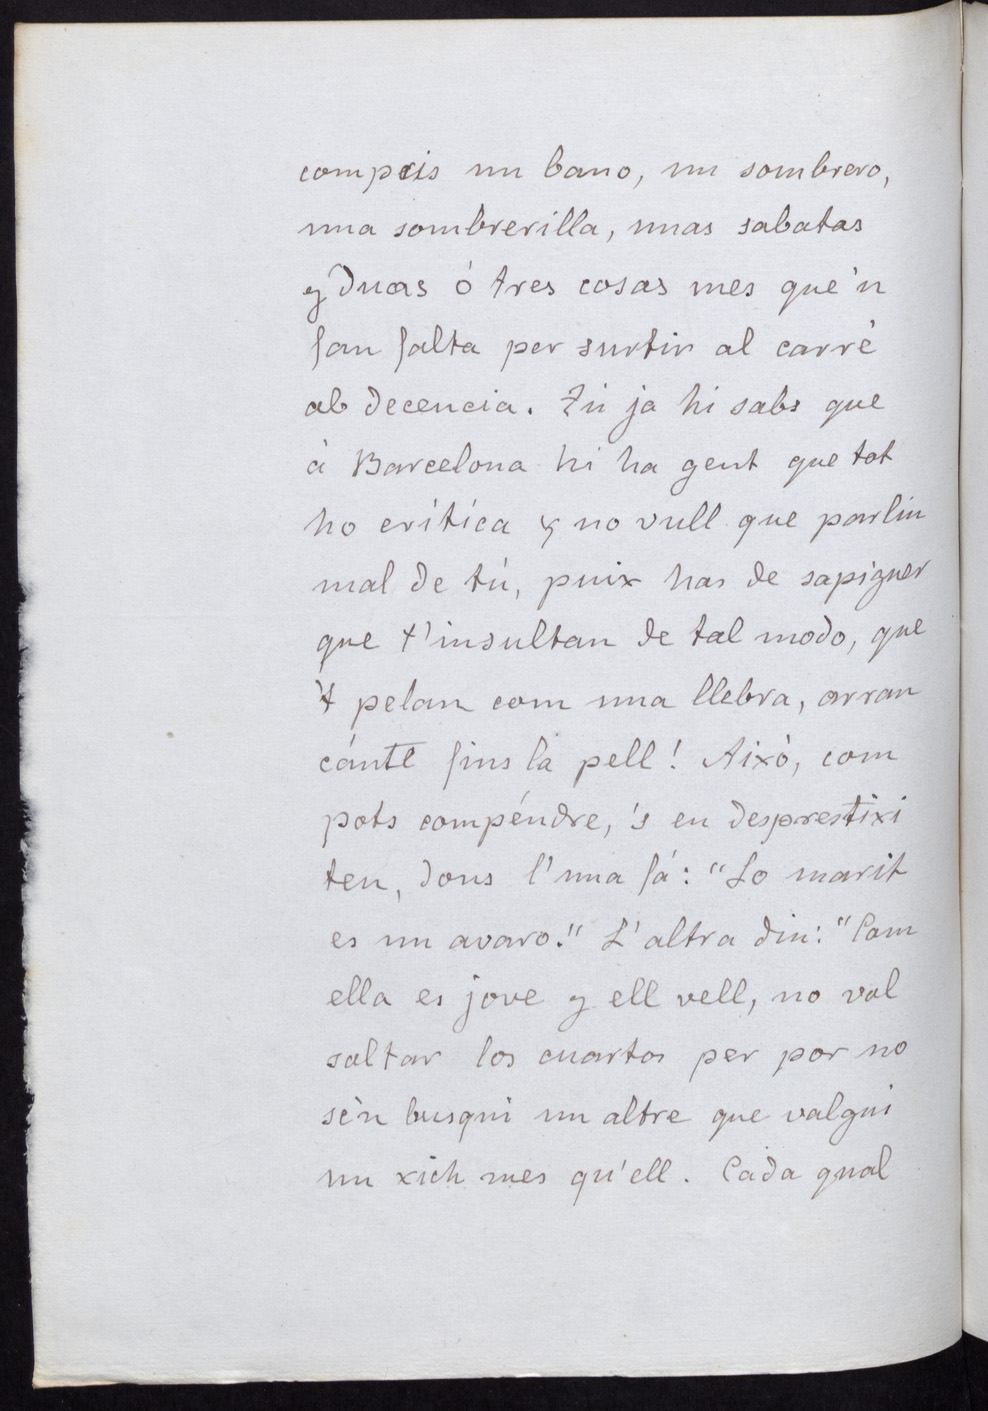 compris un bano, un sombrero,
una sombrerilla, unas sabatas
y duas ó tres cosas mes que'n
fan falta per surtir al carré
ab decencia. Tú ja hi sabs que
á Barcelona hi ha gent que tot
ho crítica y no vull que parlin
mal de tú, puix has de sapiguer
que t'insultan de tal modo, que
't pelan com una llebra, arran
cánte fins la pell! Aixó, com
pots compéndre, 's en desprestixi
teu, dons l'una fá: "Lo marit
es un avaro." L'altra diu: "Com
ella es jove y ell vell, no vol
soltar los cuartos per por no
sèn busqui un altre que valgui
un xich mes qu'ell. Cada qual